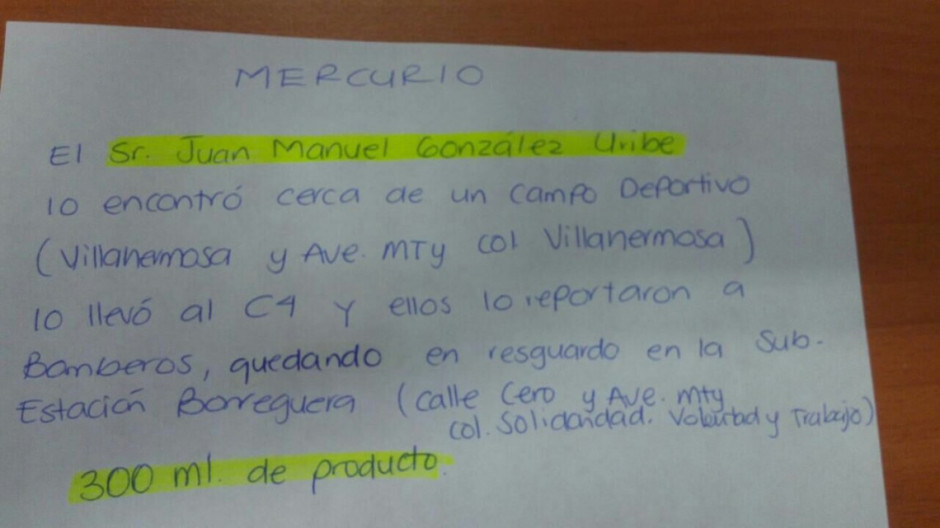 MERCURIO
El Sr. Juan Manuel González Uribe
lo encontró cerca de un campo Deportivo
(Villahermosa y Ave. MTY col Villahermosa)
lo llevó al C4 y ellos lo reportaron a
Bomberos, quedando en resguardo en la Sub-
Estación Borreguera (calle Cero y Ave. mty
col. Solidaridad. Voluntad y Trabajo)
300 ml. de producto.